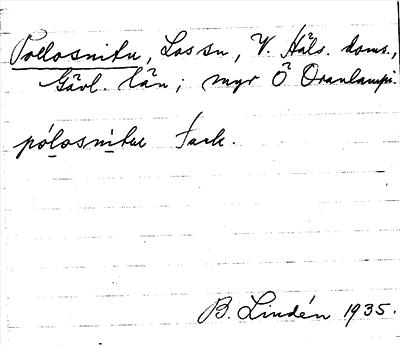 Pollosnitu, Los sn, V. Häls. doms.,
Gävl. län; myr Ö Oranlampi.
pólosnitu Fack.
B. Lindén 1935.